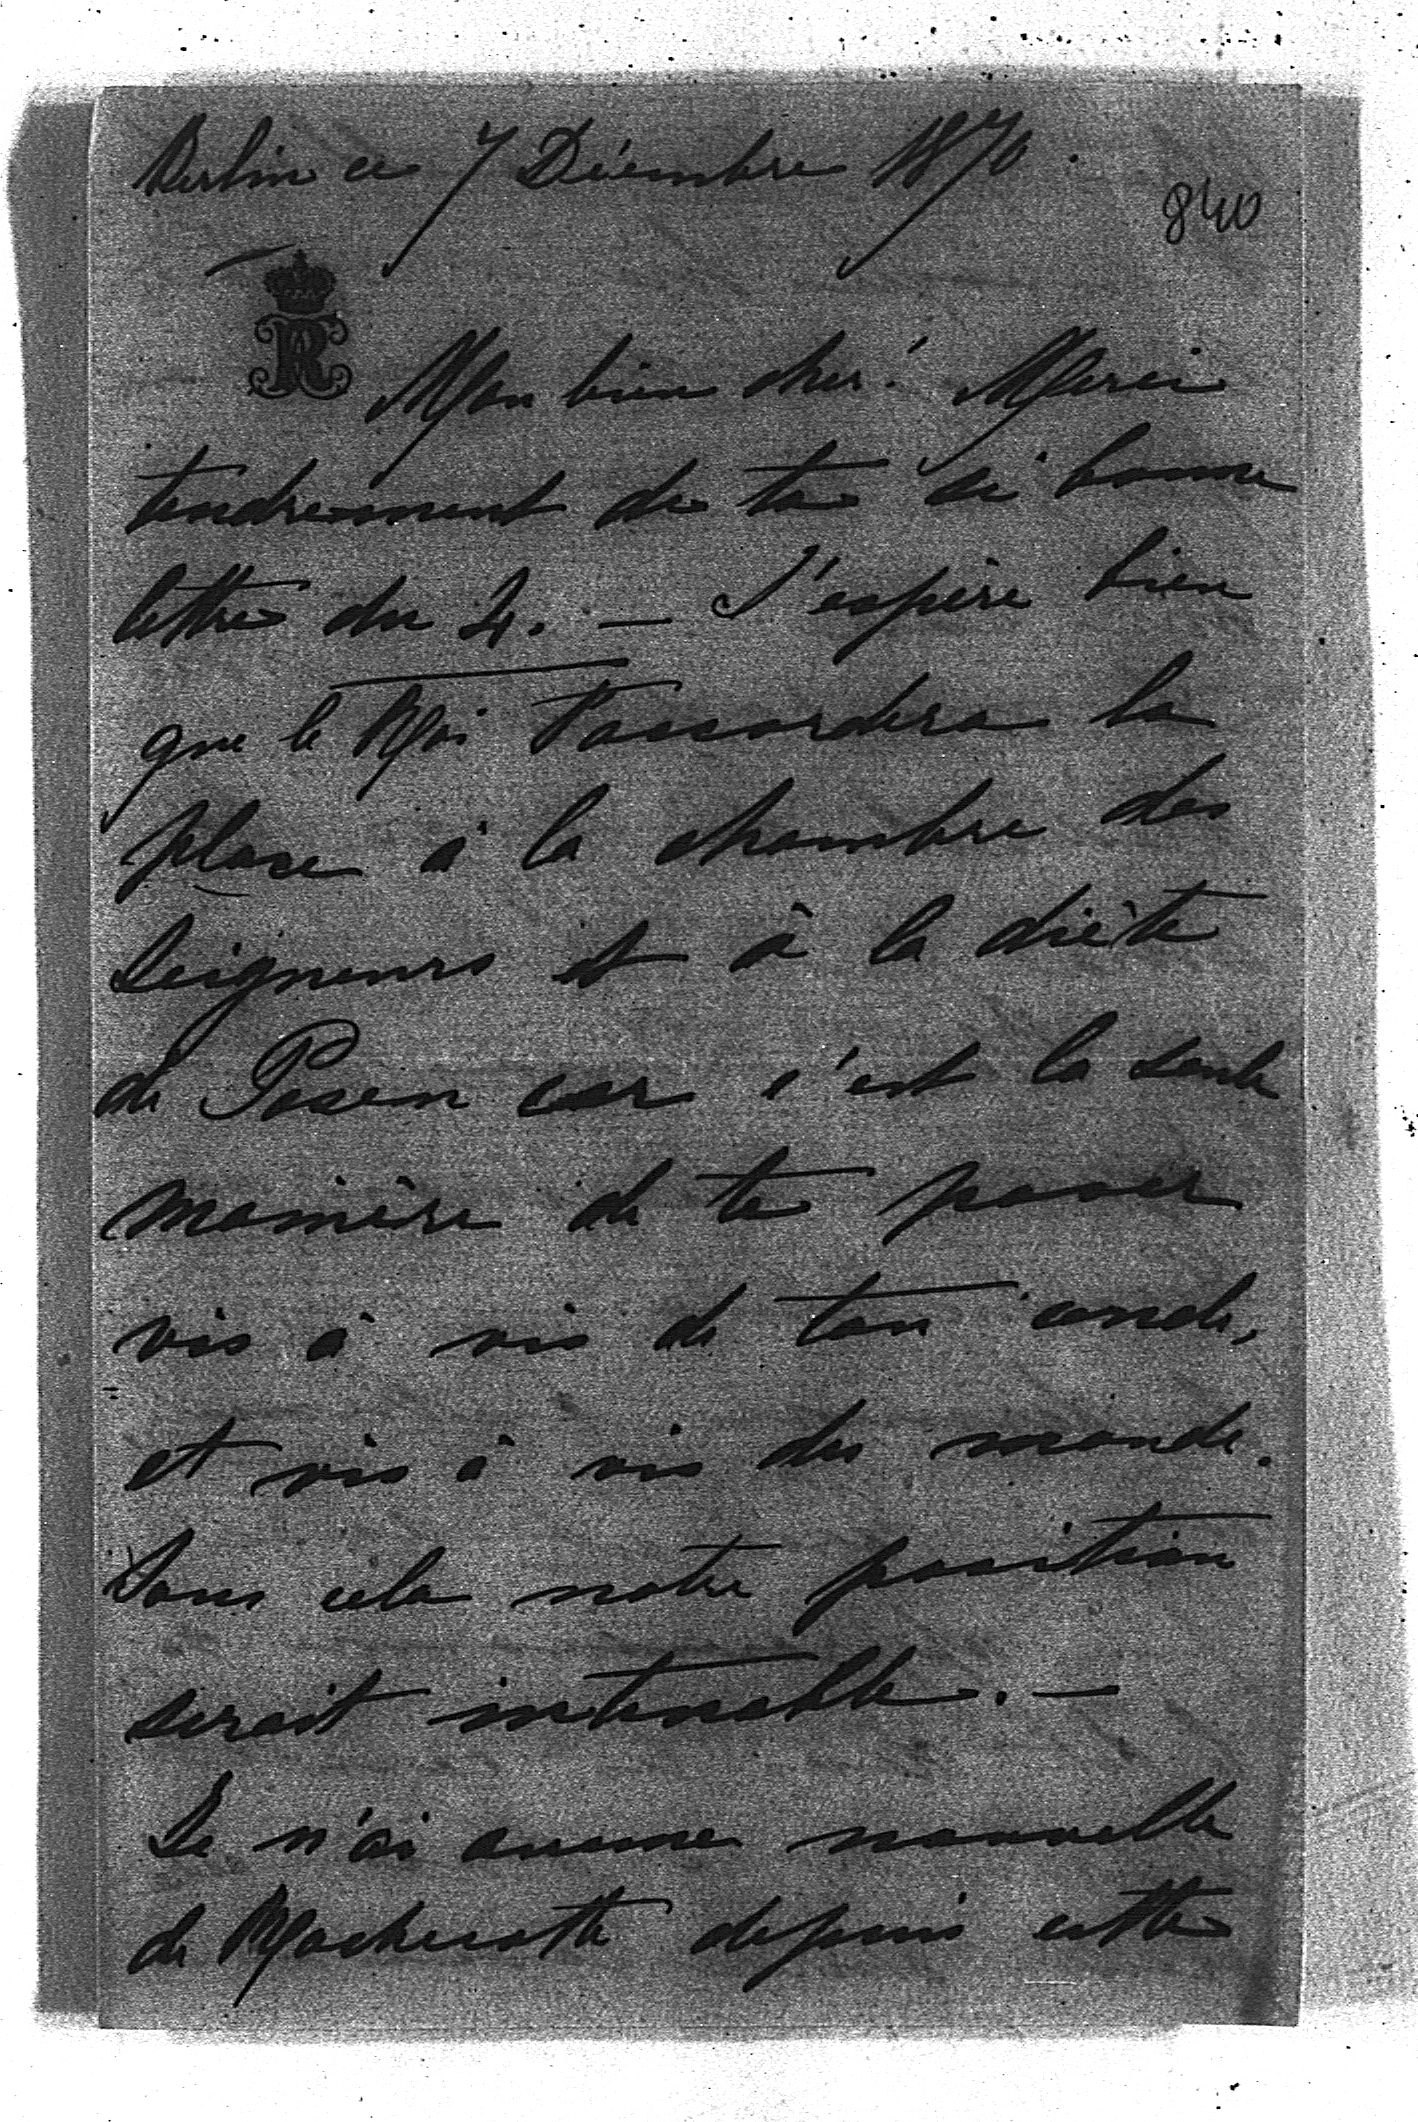 Berlin ce 7 Décembre 1870.
840
R
Mon bien cher! Merci
tendrement de ta si bonne
lettre du 4. — J'espère bien
que le Roi t'accordera la
place à la chambre des
Seigneurs et à la diète
de Posen car c'est la seule
manière de te poser
vis à vis de ton oncle,
et vis à vis du monde.
Sans cela notre position
serait intenable. —
Je n'ai aucune nouvelle
de depuis cette